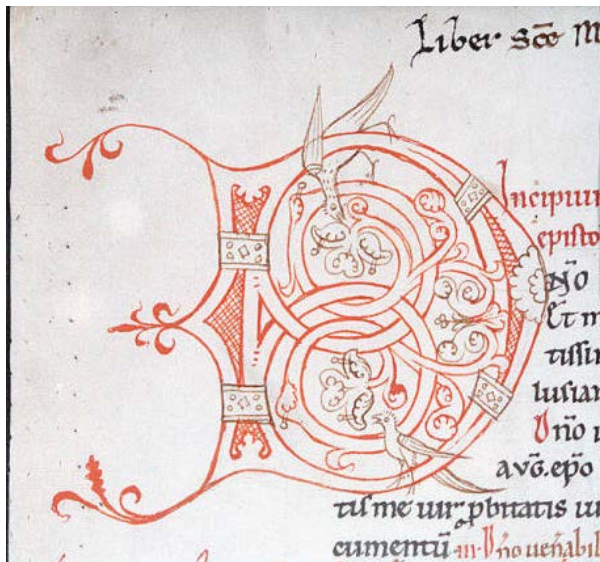 Liber sc̄e M
Incipiun
episto
ÑO
Et m
tissim
lusian
Dño u
avḡ. ep̄o
tis me uir pbitatis uu
cumentū .iii. Dño uenabil